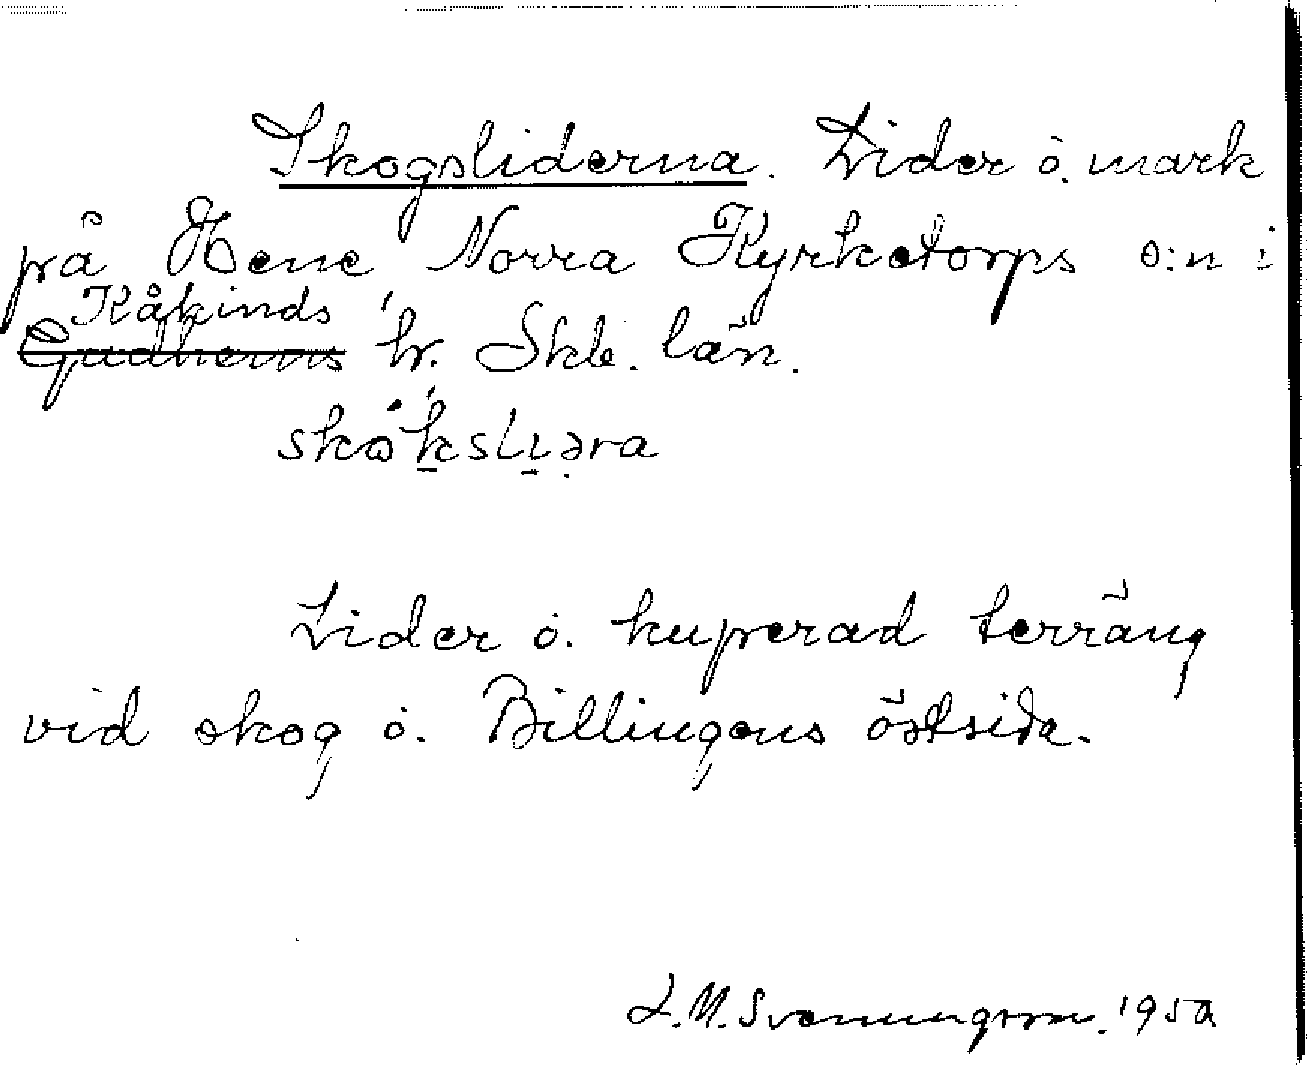 Skogsliderna. Lider o. mark
på Hene Norra Kyrketorps s:n i
Kåkinds
Gudhems hr. Skb. län.
Lider o. kuperad terräng
vid skog o. Billingens östsida.
L. M. Svenungsson. 1950